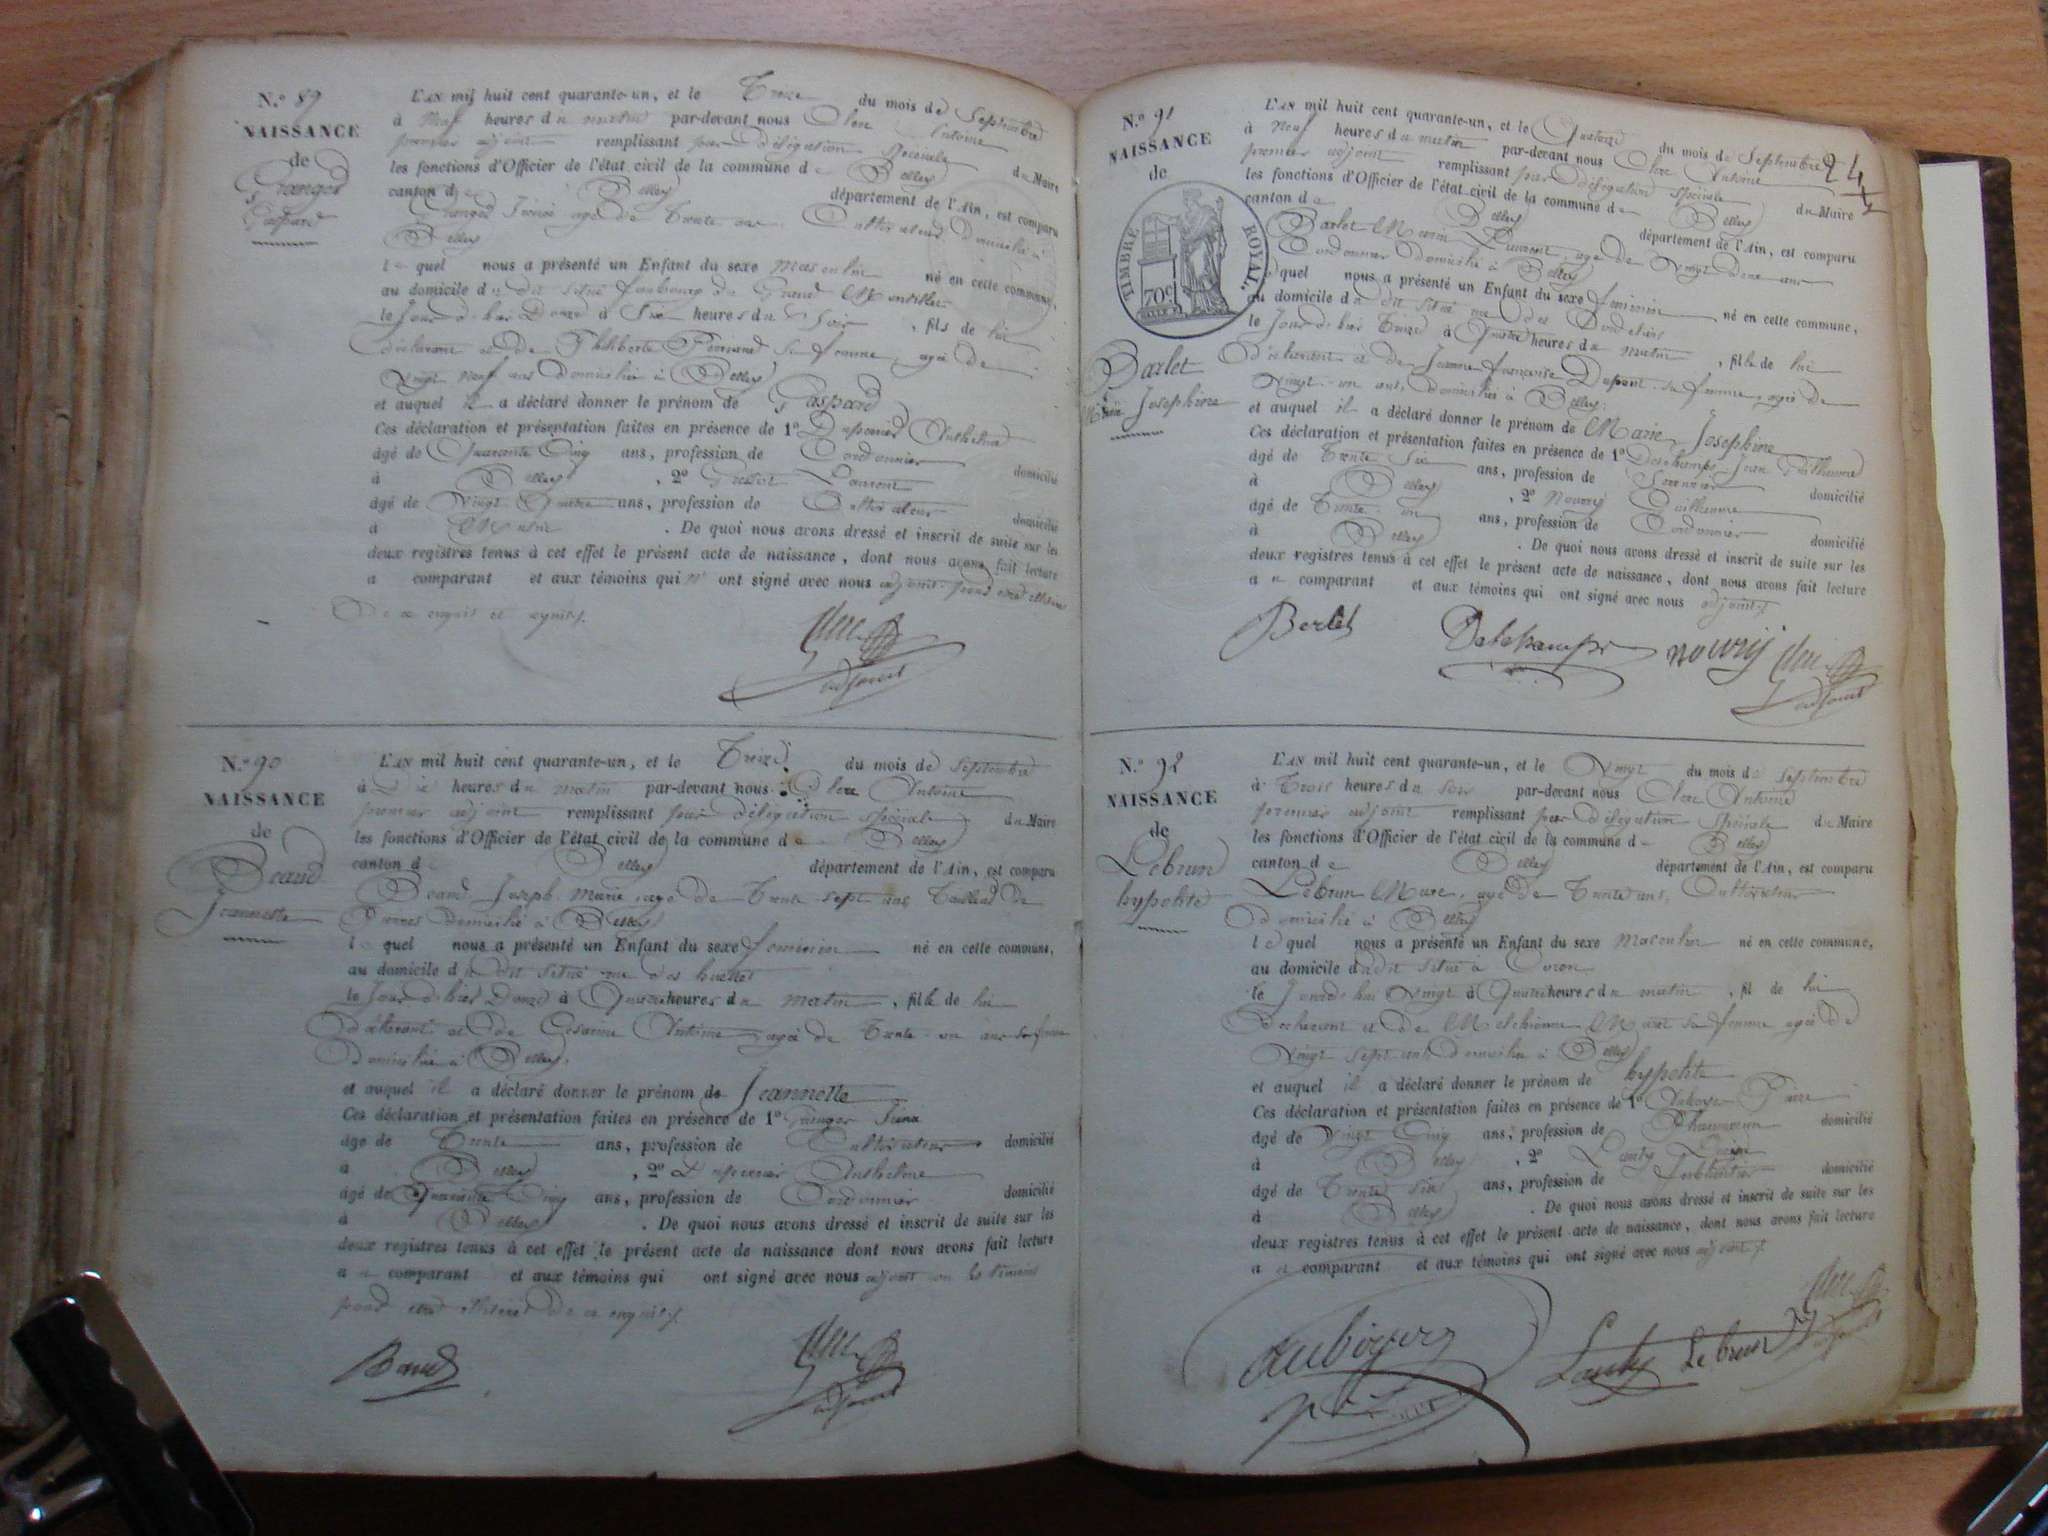 N.° 89
NAISSANCE
de
Granger
Gaspard
L'AN mil huit cent quarante-un, et le Treize du mois de Septembre
à Neuf heures du matin par-devant nous Clerc Antoine
premier adjoint remplissant par délégation spéciale du Maire
les fonctions d'Officier de l'état civil de la commune de Belley
canton de Belley département de l'Ain, est comparu
Granger agé de Trente ans Cultivateur Domicilié à
Belley
lequel nous a présenté un Enfant du sexe Masculin né en cette commune,
au domicile du dit situé faubourg du Grand
le Jour d'hier Douze à Six heures du Soir, fils de lui
déclarant et de Philiberte sa femme, agée de
Vingt neuf ans domiciliée à Belley
et auquel il a déclaré donner le prénom de Gaspard
Ces déclaration et présentation faites en présence de 1° Anthelme
âgé de Quarante Cinq ans, profession de Cordonnier domicilié
à Belley, 2° Laurent
âgé de Vingt Quatre ans, profession de Cultivateur domicilié
à . De quoi nous avons dressé et inscrit de suite sur les
deux registres tenus à cet effet le présent acte de naissance, dont nous avons fait lecture
a comparant et aux témoins qui n' ont signé avec nous adjoint pour être illitérés
De ce enquis et
Clerc
adjoint
N.° 90
NAISSANCE
de
Beaud
Jeannette
L'AN mil huit cent quarante-un, et le Treize du mois de Septembre
à Dix heures du matin par-devant nous Clerc Antoine
premier adjoint remplissant par délégation spéciale du Maire
les fonctions d'Officier de l'état civil de la commune de Belley
canton de Belley département de l'Ain, est comparu
Beaud Joseph Marie agé de Trente sept ans Tailleur de
Pierres Domicilié à Belley
lequel nous a présenté un Enfant du sexe féminin né en cette commune,
au domicile du dit situé rue des
le Jour d'hier Douze à Quatre heures du matin, fille de lui
déclarant et de Césarine Antoine agée de Trente un ans sa femme
Domiciliée à Belley.
et auquel il a déclaré donner le prénom de Jeannette
Ces déclaration et présentation faites en présence de 1° Granger
âgé de Trente ans, profession de Cultivateur domicilié
à Belley, 2° Anthelme
âgé de Quarante Cinq ans, profession de Cordonnier domicilié
à Belley. De quoi nous avons dressé et inscrit de suite sur les
deux registres tenus à cet effet le présent acte de naissance dont nous avons fait lecture
au comparant et aux témoins qui ont signé avec nous adjoint non les témoins
pour être illitérés De ce enquis
Baud
Clerc
adjoint
N.° 91
NAISSANCE
de
TIMBRE ROYAL
70c
Barlet
Marie Josephine
L'AN mil huit cent quarante-un, et le Quatorze du mois de Septembre
24
à Neuf heures du matin par-devant nous Clerc Antoine
premier adjoint remplissant par délégation spéciale du Maire
les fonctions d'Officier de l'état civil de la commune de Belley
canton de Belley département de l'Ain, est comparu
Barlet Marin Laurent, agé de Vingt Deux ans
Cordonnier Domicilié à Belley
lequel nous a présenté un Enfant du sexe féminin né en cette commune,
au domicile du dit situé rue des Cordeliers
le Jour d'hier Treize à Quatre heures du matin, fille de lui
déclarant et de Jeanne françoise Dupont sa femme, agée de
Vingt un ans, domiciliée à Belley.
et auquel il a déclaré donner le prénom de Marie Josephine
Ces déclaration et présentation faites en présence de 1° Deschamps Jean Guillaume
âgé de Trente Six ans, profession de Serrurier domicilié
à Belley, 2° Nourry Guillaume
âgé de Trente un ans, profession de Cordonnier domicilié
à Belley. De quoi nous avons dressé et inscrit de suite sur les
deux registres tenus à cet effet le présent acte de naissance, dont nous avons fait lecture
au comparant et aux témoins qui ont signé avec nous adjoint
Berlet Deschamps nourij Clerc
adjoint
N.° 92
NAISSANCE
de
Lebrun
hypolite
L'AN mil huit cent quarante-un, et le Vingt du mois de Septembre
à Trois heures du Soir par-devant nous Clerc Antoine
premier adjoint remplissant par délégation spéciale du Maire
les fonctions d'Officier de l'état civil de la commune de Belley
canton de Belley département de l'Ain, est comparu
Lebrun Marc, agé de Trente ans, Cultivateur
Domicilié à Belley
lequel nous a présenté un Enfant du sexe Masculin né en cette commune,
au domicile du dit situé à
le Jourd'hui Vingt à Quatre heures du matin, fil de lui
Déclarant et de Melchionne sa femme agée de
Vingt sept ans domiciliée à Belley
et auquel il a déclaré donner le prénom de hypolite
Ces déclaration et présentation faites en présence de 1° Auboyer Pierre
âgé de Vingt Cinq ans, profession de Pharmacien domicilié
à Belley, 2° Lanty
âgé de Trente Six ans, profession de domicilié
à Belley. De quoi nous avons dressé et inscrit de suite sur les
deux registres tenus à cet effet le présent acte de naissance, dont nous avons fait lecture
au comparant et aux témoins qui ont signé avec nous adjoint
Auboyer Lanty Lebrun Clerc
adjoint